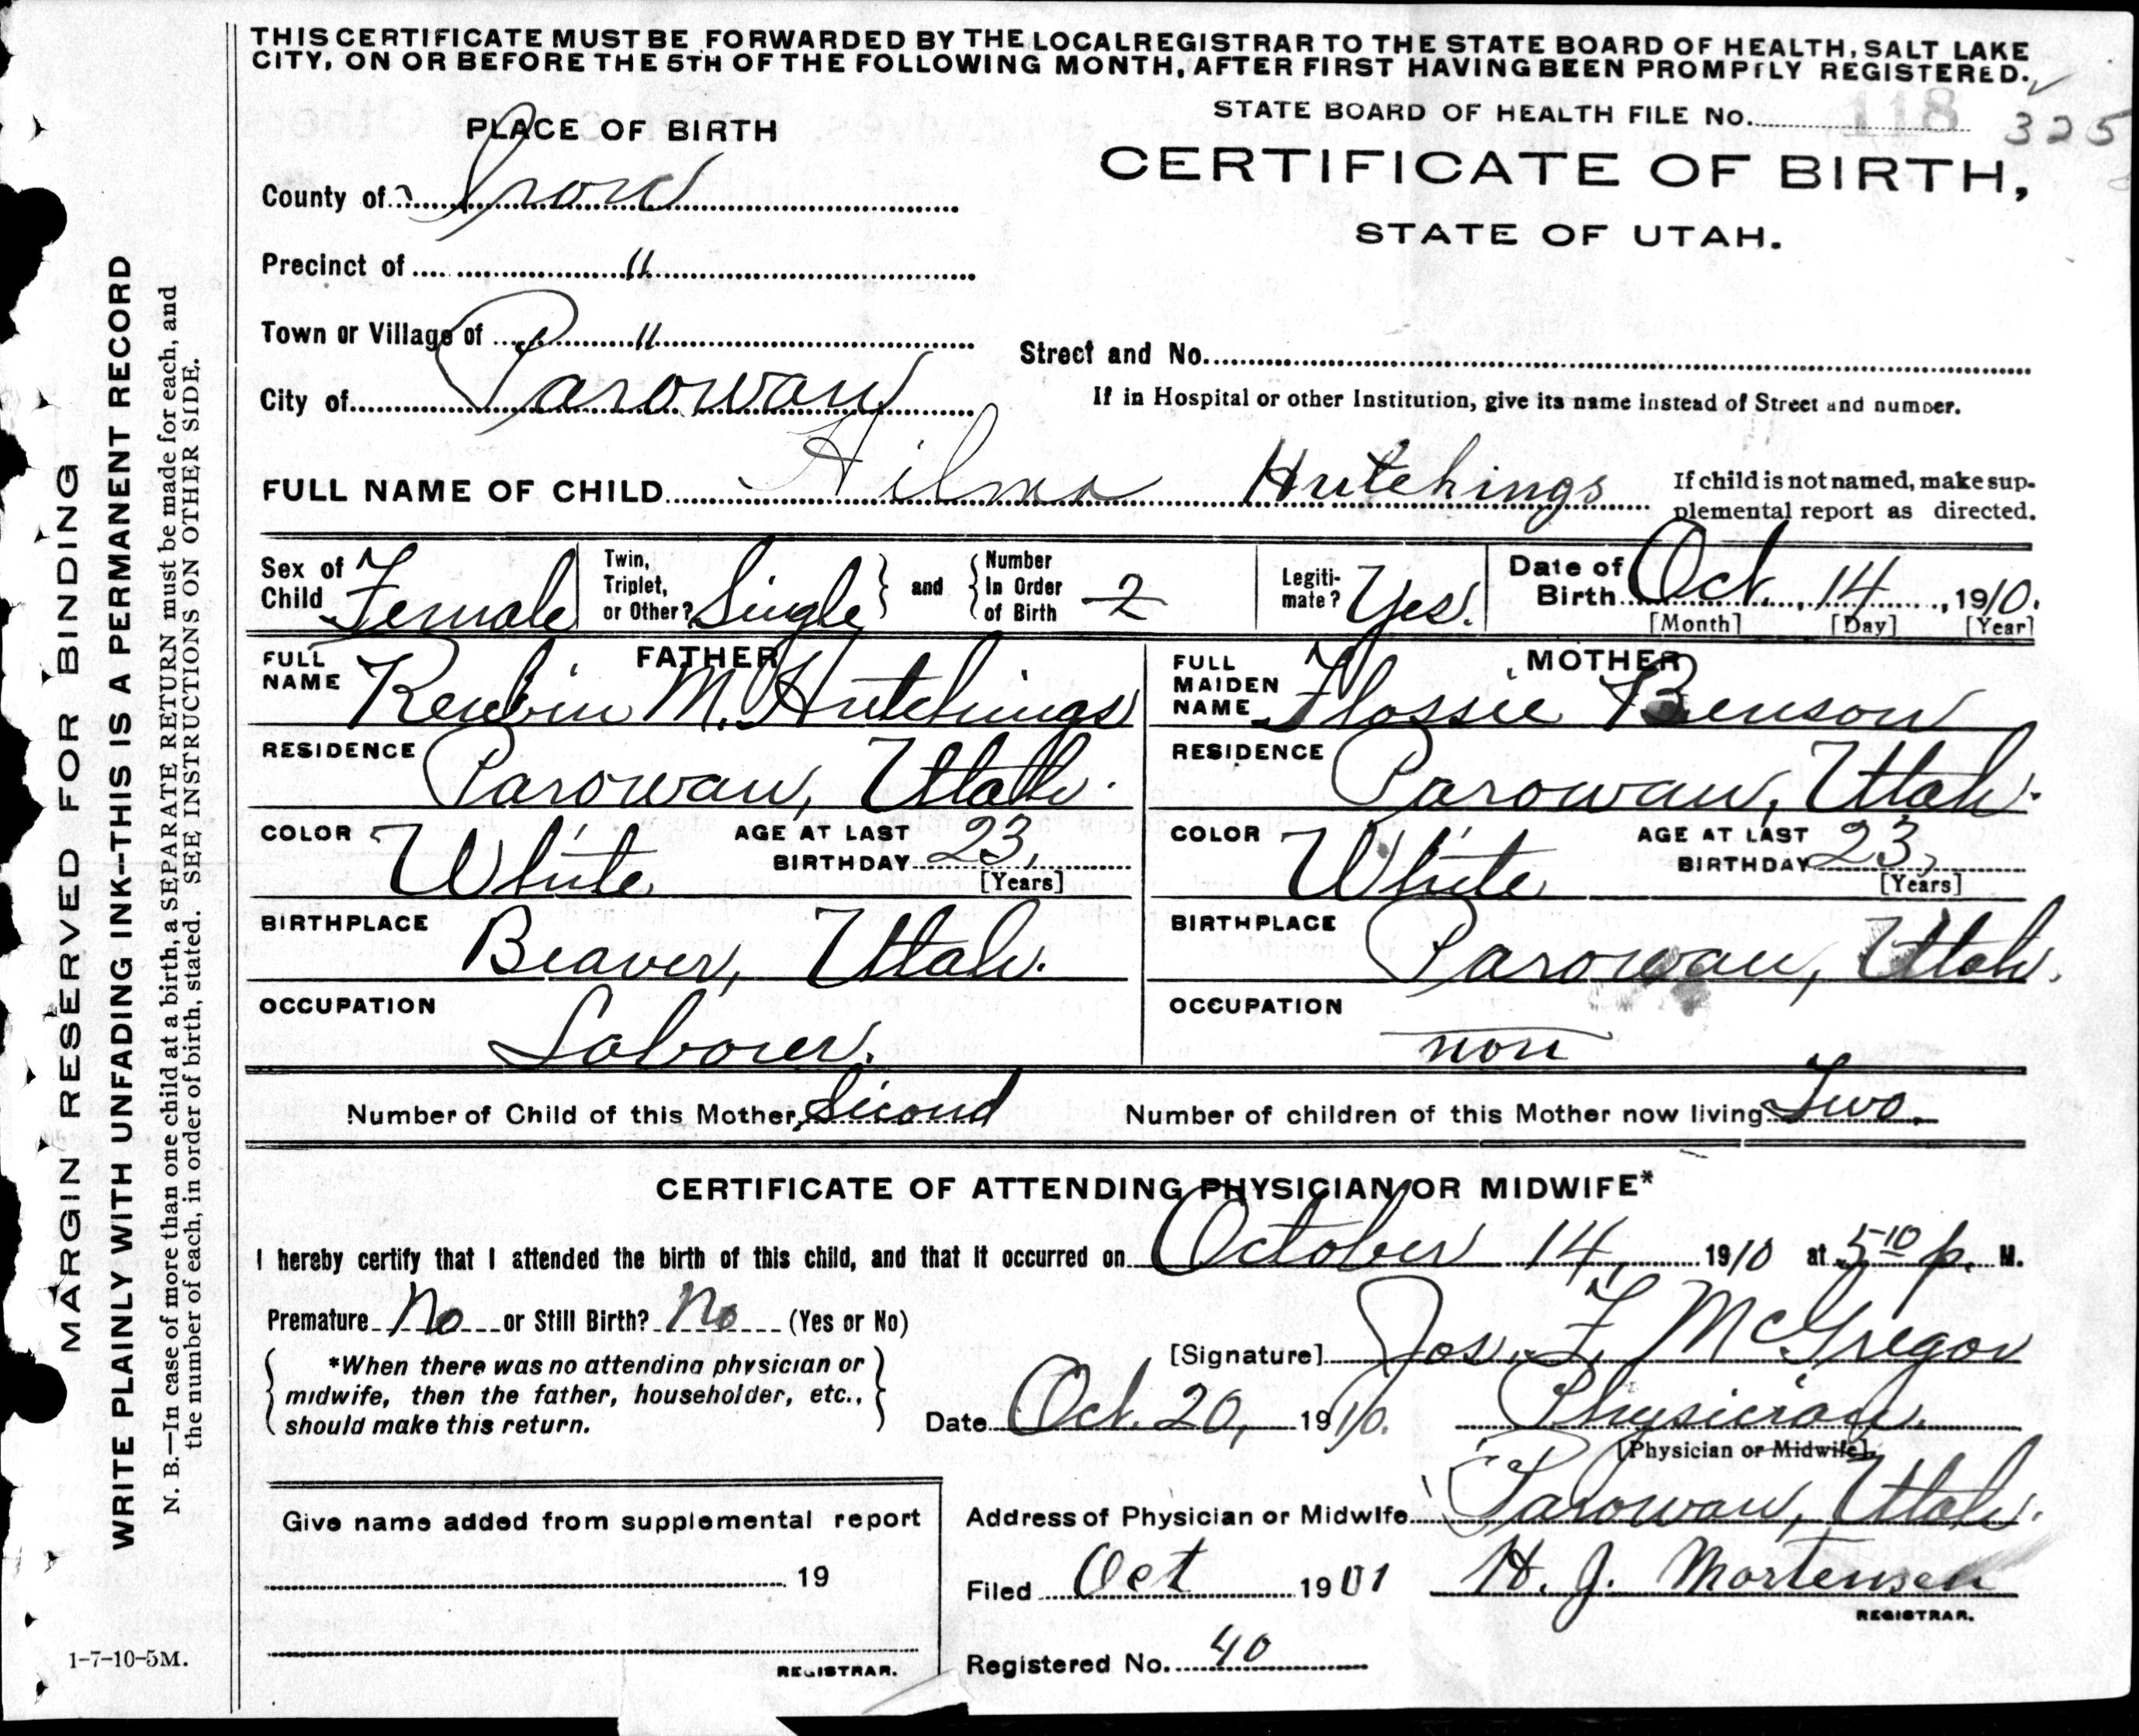 THIS CERTIFICATE MUST BE FORWARDED BY THE LOCAL REGISTRAR TO THE STATE BOARD OF HEALTH, SALT LAKE
CITY, ON OR BEFORE THE 5TH OF THE FOLLOWING MONTH, AFTER FIRST HAVING BEEN PROMPTLY REGISTERED.
STATE BOARD OF HEALTH FILE NO. 118 325
PLACE OF BIRTH
CERTIFICATE OF BIRTH,
STATE OF UTAH.
County of Iron
Precinct of "
Town or Village of "
Street and No.
City of Parowan
If in Hospital or other Institution, give its name instead of Street and number.
FULL NAME OF CHILD Hilma Hutchings
If child is not named, make sup-
plemental report as directed.
Sex of Child Female
Twin, Triplet, or Other? Single and Number In Order of Birth 2
Legiti-mate? Yes.
Date of Birth Oct. 14, 1910.
[Month] [Day] [Year]
FATHER
FULL NAME Reubin M. Hutchings
RESIDENCE Parowan, Utah.
COLOR White AGE AT LAST BIRTHDAY 23,
[Years]
BIRTHPLACE Beaver, Utah.
OCCUPATION Laborer.
MOTHER
FULL MAIDEN NAME Flossie Benson
RESIDENCE Parowan, Utah.
COLOR White AGE AT LAST BIRTHDAY 23,
[Years]
BIRTHPLACE Parowan, Utah.
OCCUPATION non
Number of Child of this Mother, Second Number of children of this Mother now living Two.
CERTIFICATE OF ATTENDING PHYSICIAN OR MIDWIFE*
I hereby certify that I attended the birth of this child, and that it occurred on October 14, 1910 at 5 10 p. M.
Premature No or Still Birth? No (Yes or No)
*When there was no attending physician or
midwife, then the father, householder, etc.,
should make this return.
[Signature] Jos. F. McGregor
Date Oct. 20, 1910. Physician.
[Physician or Midwife]
Address of Physician or Midwife Parowan, Utah.
Filed Oct 1901 H. J. Mortensen
REGISTRAR.
Registered No. 40
Give name added from supplemental report
19
REGISTRAR.
MARGIN RESERVED FOR BINDING
WRITE PLAINLY WITH UNFADING INK—THIS IS A PERMANENT RECORD
N. B.—In case of more than one child at a birth, a SEPARATE RETURN must be made for each, and
the number of each, in order of birth, stated. SEE INSTRUCTIONS ON OTHER SIDE.
1-7-10-5M.